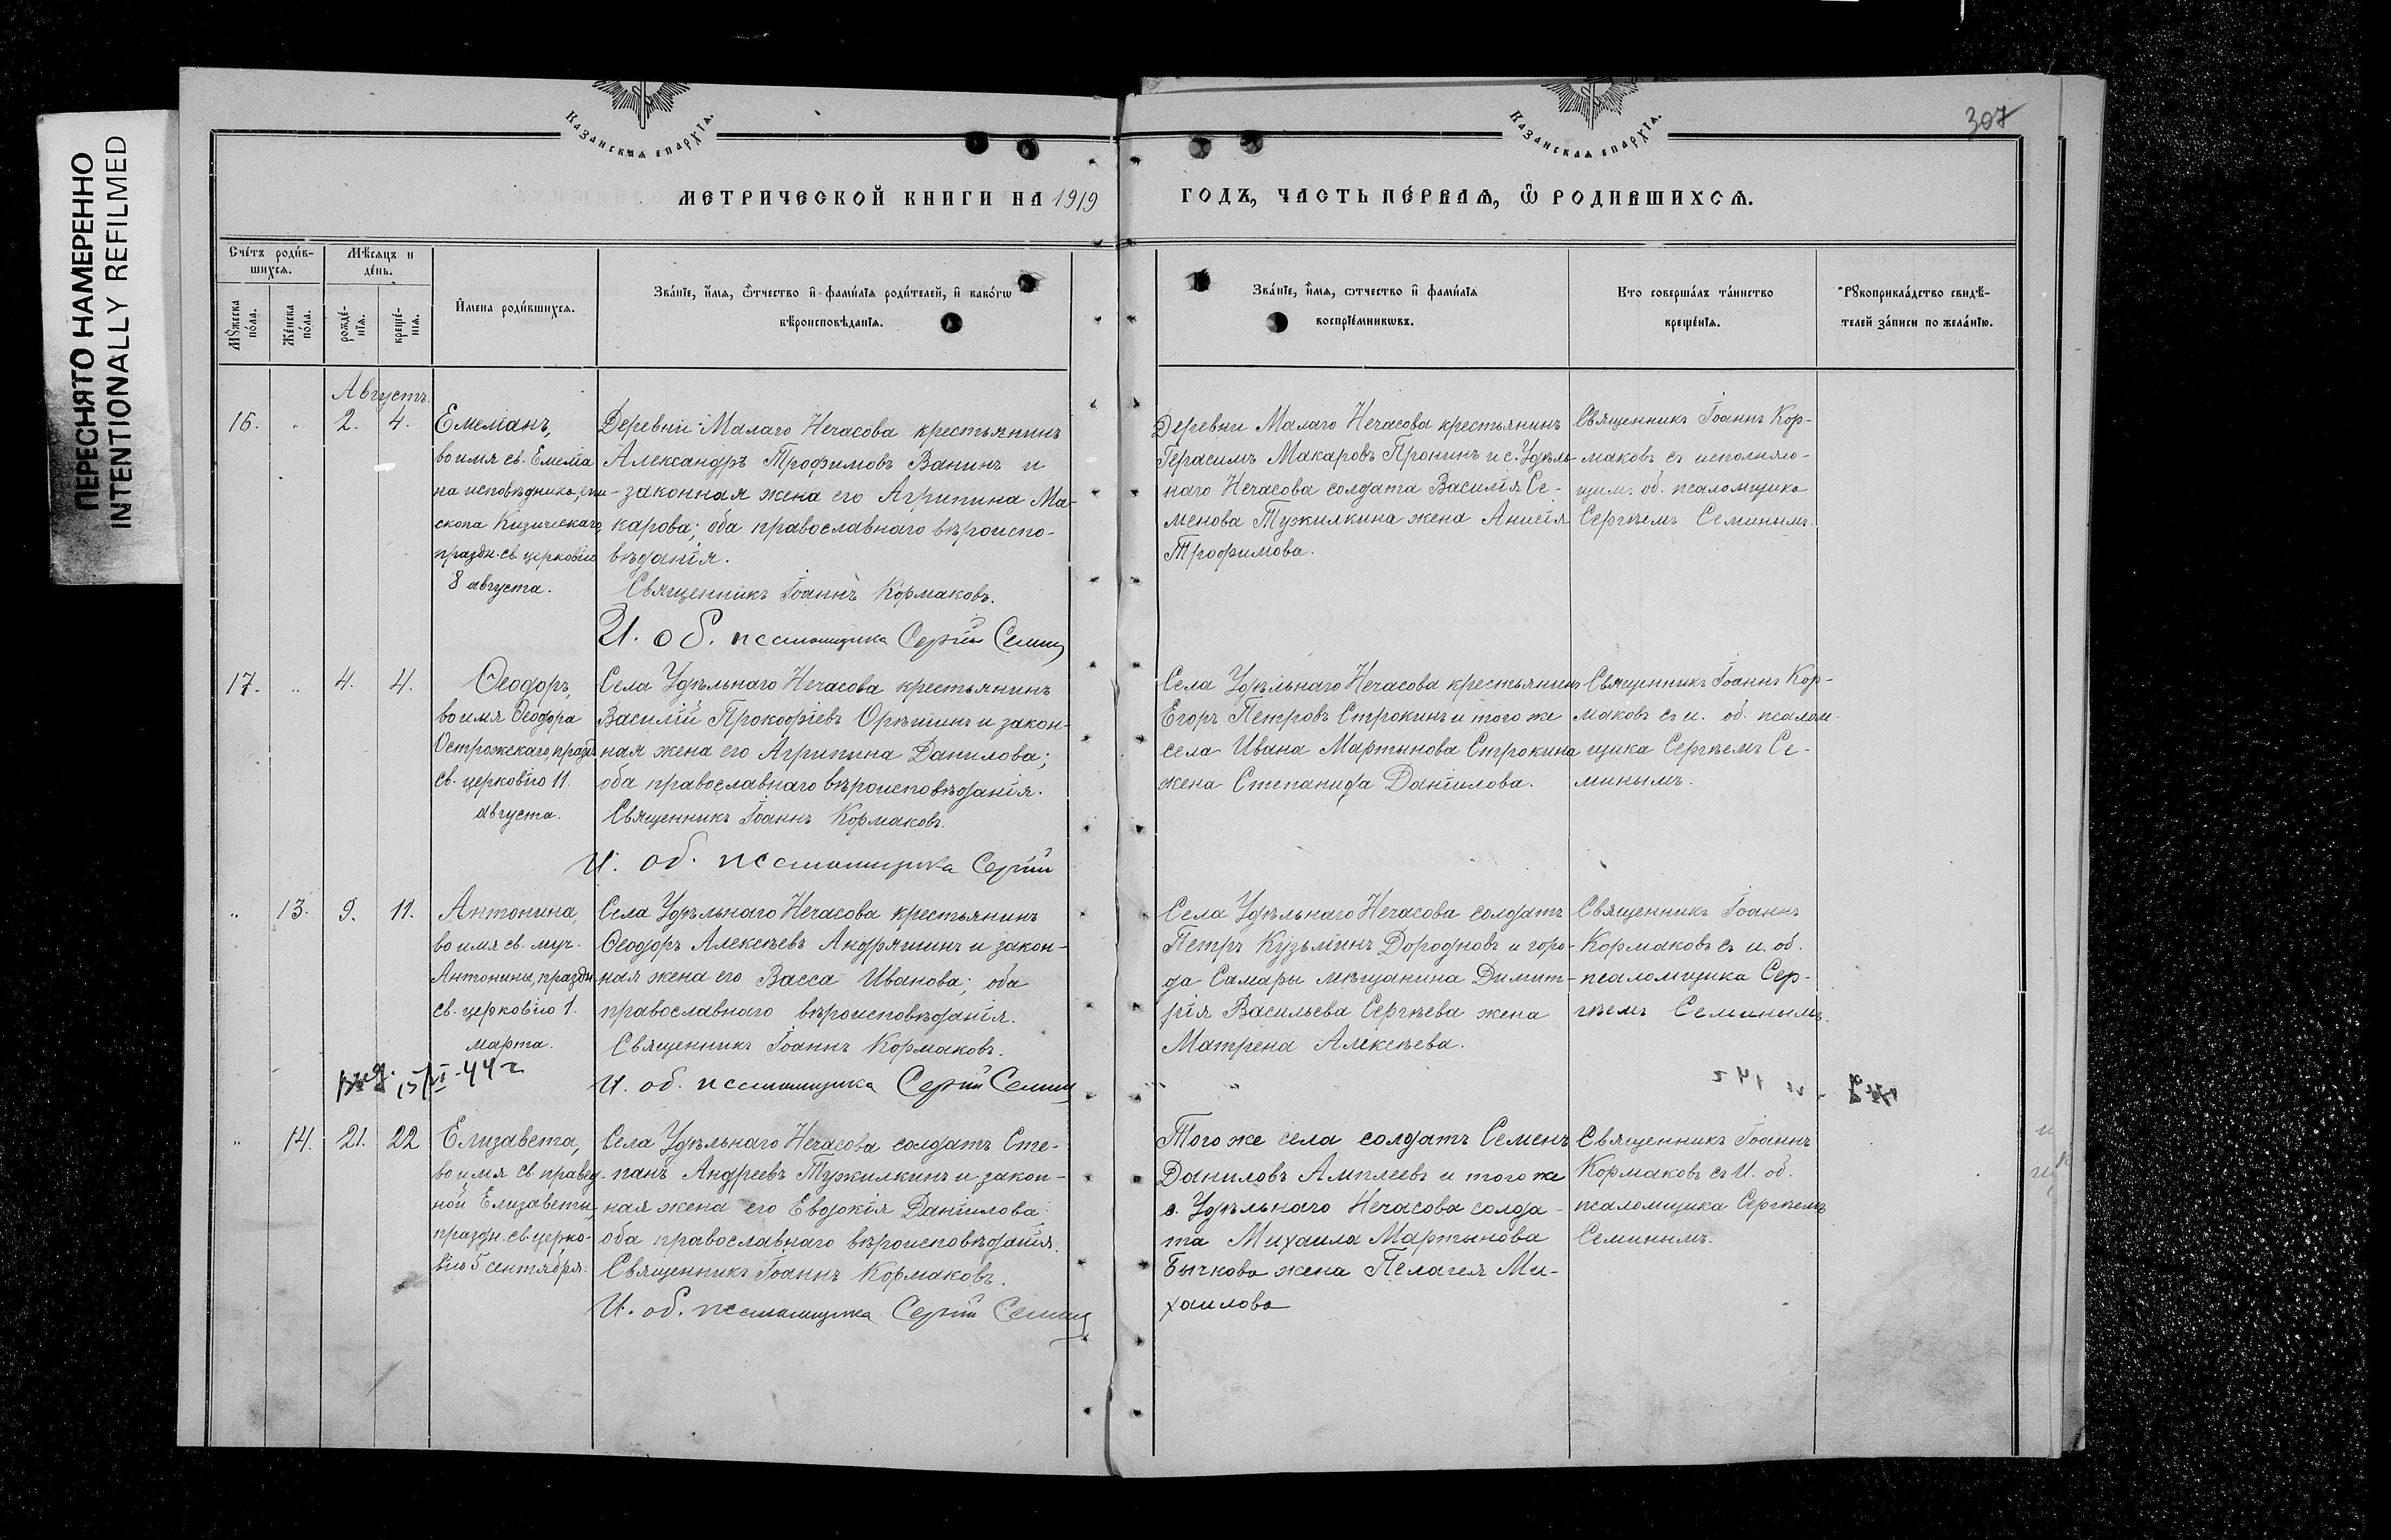 ПЕРЕСНЯТО НАМЕРЕННО
INTENTIONALLY REFILMED
КАЗАНСКАЯ ЕПАРХІЯ.
КАЗАНСКАЯ ЕПАРХІЯ.
307
МЕТРИЧЕСКОЙ КНИГИ НА 1919
ГОДЪ, ЧАСТЬ ПЕ́РВАЯ, Ѿ РОДИВШИХСЯ.
Сче́тъ роди́в-
шихся.
Мѣсяцъ и
де́нь.
Мꙋ́жеска
по́ла.
Же́нска
по́ла.
рожде́-
нія.
креще́-
нія.
И҆мена роди́вшихся.
Зва́ніе, и҆́мя, ѻ҆́тчество и҆ фами́лія роди́телей, и҆ како́гѡ
вѣроисповѣ́данія.
Зва́ніе, и҆́мя, ѻтчество и҆ фами́лія
воспріе́мникѡвъ.
Кто соверша́лъ та́инство
креще́нія.
Рꙋкоприкла́дство свидѣ́-
телей за́писи по жела́нію.
Августъ.
16.
2.
4.
Емеліанъ,
во имя св. Емеліа
на исповѣдника, епи-
скопа Кизическаго,
праздн. св. церковію
8 августа.
Деревни Малаго Нечасова крестьянинъ
Александръ Трофимовъ Ванинъ и
законная жена его Агрипина Ма-
карова; оба православнаго вѣроиспо-
вѣданія.
Священникъ Іоаннъ Кормаковъ.
И. об. псаломщика Сергій Семин
Деревни Малаго Нечасова крестьянинъ
Герасимъ Макаровъ Пронинъ и с. Удѣль-
наго Нечасова солдата Василія Се-
менова Тужилкина жена Анисія
Трофимова.
Священникъ Іоаннъ Кор-
маковъ съ исполняю-
щим. об. псаломщика
Сергѣемъ Семинымъ.
17.
4.
4.
Ѳеодоръ,
во имя Ѳеодора
Острожскаго, празд.
св. церковію 11.
августа.
Села Удѣльнаго Нечасова крестьянинъ
Василій Прокофіевъ Орѣшинъ и закон-
ная жена его Агрипина Данилова;
оба православнаго вѣроисповѣданія.
Священникъ Іоаннъ Кормаковъ.
И. об. псаломщика Сергій
Села Удѣльнаго Нечасова крестьянинъ
Егоръ Петровъ Строкинъ и того же
села Ивана Мартынова Строкина
жена Степанида Даніилова.
Священникъ Іоаннъ Кор-
маковъ съ и. об. псалом-
щика Сергѣемъ Се-
минымъ.
13.
9.
11.
Антонина,
во имя св. муч.
Антонины, праздн.
св. церковію 1.
марта.
Села Удѣльнаго Нечасова крестьянинъ
Ѳеодоръ Алексѣевъ Андряшинъ и закон-
ная жена его Васса Иванова; оба
православнаго вѣроисповѣданія.
Священникъ Іоаннъ Кормаковъ.
И. об. псаломщика Сергій Семин
Села Удѣльнаго Нечасова солдатъ
Петръ Кузьминъ Дородновъ и горо-
да Самары мѣщанина Димит-
рія Васильева Сергѣева жена
Матрена Алексѣева.
Священникъ Іоаннъ
Кормаковъ съ и. об.
псаломщика Сер-
гѣемъ Семинымъ.
44 г
14.
21.
22
Елизавета,
во имя св. правед-
ной Елизаветы,
праздн. св. церко-
вію 5 сентября.
Села Удѣльнаго Нечасова солдатъ Сте-
панъ Андреевъ Тужилкинъ и закон-
ная жена его Евдокія Даніилова
оба православнаго вѣроисповѣданія.
Священникъ Іоаннъ Кормаковъ.
И. об. псаломщика Сергій Семин
Того же села солдатъ Семенъ
Даниловъ Амплеевъ и того же
с. Удѣльнаго Нечасова солда-
та Михаила Мартынова
Бычкова жена Пелагея Ми-
хаилова
Священникъ Іоаннъ
Кормаковъ съ И. об.
псаломщика Сергѣемъ
Семинымъ.